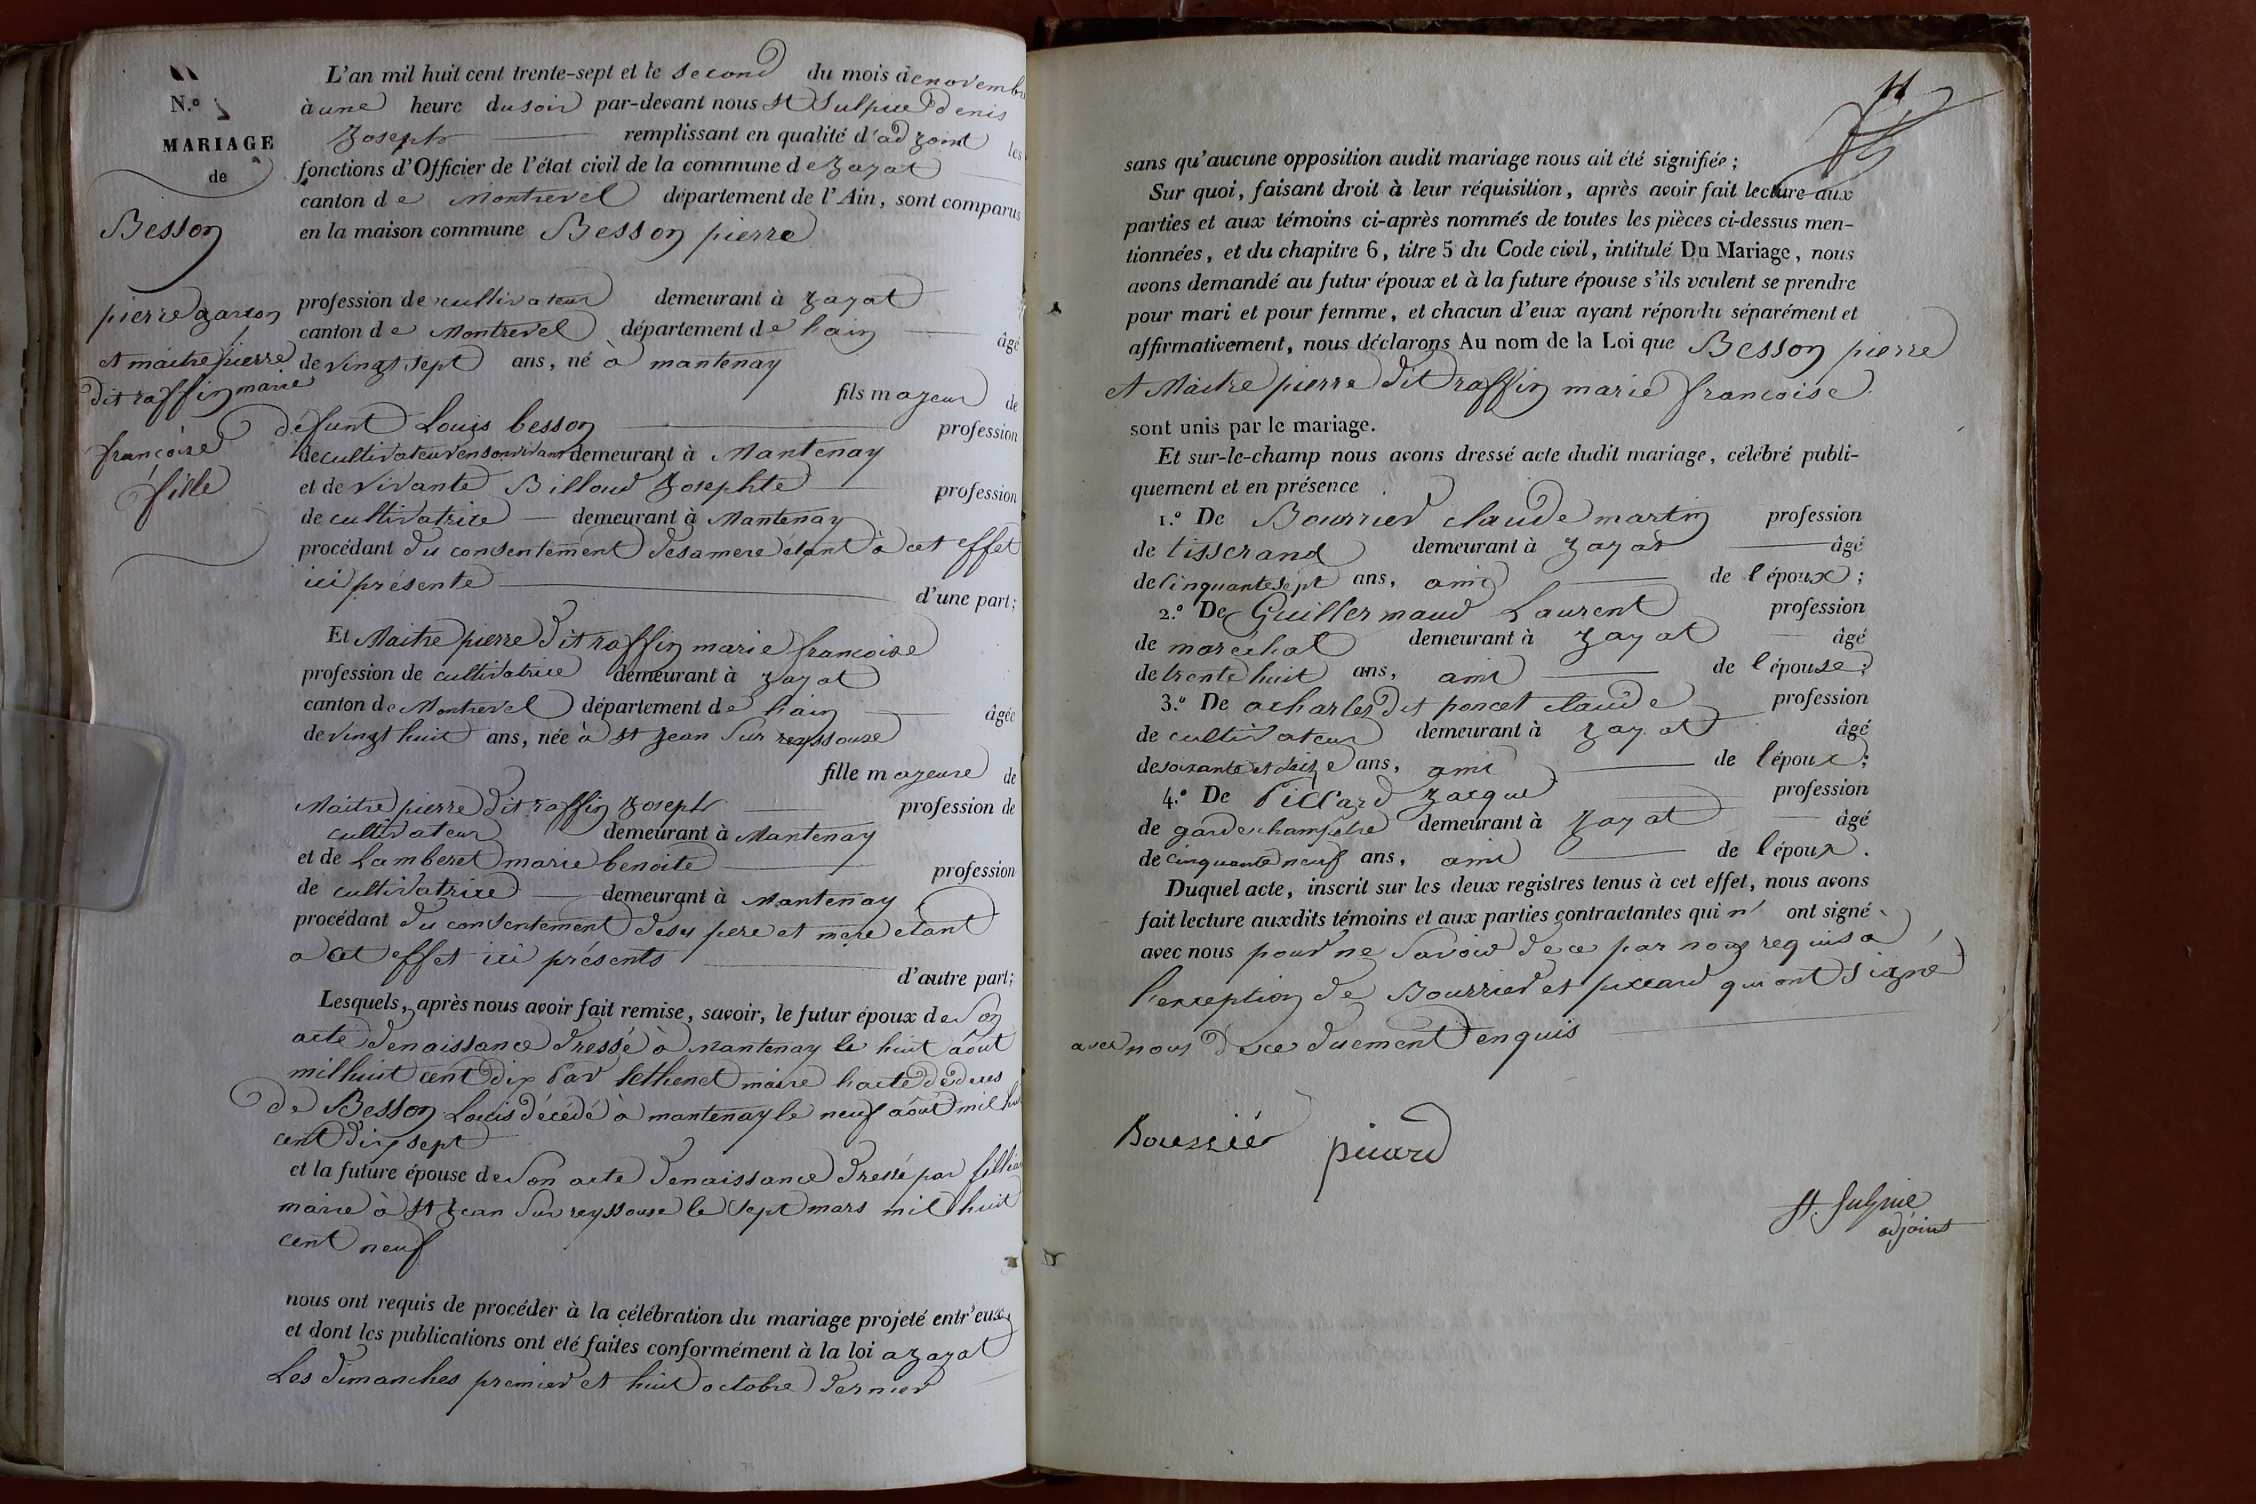 N.º
MARIAGE
de
Besson
pierre garcon
et maitre pierre
dit raffin marie
francoise
fille
L'an mil huit cent trente-sept et le second du mois de novembre
à une heure du soir par-devant nous St Sulpice denis
Joseph remplissant en qualité d'adjoint les
fonctions d'Officier de l'état civil de la commune de Jayat
canton de Montrevel département de l'Ain, sont comparus
en la maison commune Besson pierre
profession de cultivateur demeurant à Jayat
canton de Montrevel département de lain âgé
de vingt sept ans, né à mantenay
fils majeur de
défunt Louis besson profession
de cultivateur en son vivant demeurant à Mantenay
et de vivante Billoud Josephte profession
de cultivatrice demeurant à Mantenay
procédant du consentement de sa mere étant à cet effet
ici présente d'une part;
Et Maitre pierre dit raffin marie francoise
profession de cultivatrice demeurant à Jayat
canton de Montrevel département de lain âgée
de vingt huit ans, née à St Jean Sur reyssouze
fille majeure de
Maitre pierre dit raffin Joseph profession de
cultivateur demeurant à Mantenay
et de Lamberet marie benoite profession
de cultivatrice demeurant à Mantenay
procédant du consentement de ses pere et mere etant
a cet effet ici présents d'autre part;
Lesquels, après nous avoir fait remise, savoir, le futur époux de Son
acte de naissance dressé à Mantenay le huit août
mil huit cent dix par Pethenet maire lacte de deces
de Besson Louis décédé à mantenay le neuf août mil huit
cent dix sept
et la future épouse de Son acte de naissance dressé par
maire à St Jean Sur reyssouse le sept mars mil huit
cent neuf
nous ont requis de procéder à la célébration du mariage projeté entr'eux,
et dont les publications ont été faites conformément à la loi a Jayat
Les dimanches premier et huit octobre dernier
11
sans qu'aucune opposition audit mariage nous ait été signifiée;
Sur quoi, faisant droit à leur réquisition, après avoir fait lecture aux
parties et aux témoins ci-après nommés de toutes les pièces ci-dessus men-
tionnées, et du chapitre 6, titre 5 du Code civil, intitulé Du Mariage, nous
avons demandé au futur époux et à la future épouse s'ils veulent se prendre
pour mari et pour femme, et chacun d'eux ayant répondu séparément et
affirmativement, nous déclarons Au nom de la Loi que Besson pierre
et Maitre pierre dit raffin marie francoise
sont unis par le mariage.
Et sur-le-champ nous avons dressé acte dudit mariage, célébré publi-
quement et en présence
1.º De Bourrier claude martin profession
de tisserand demeurant à Jayat âgé
de Cinquante sept ans, ami de l'époux;
2.º De Guillermaud Laurent profession
de marechal demeurant à Jayat âgé
de trente huit ans, ami de l'épouse;
3.º De acharles dit poncet claude profession
de cultivateur demeurant à Jayat âgé
de soixante et seize ans, ami de l'époux;
4.º De Piccard Jacque profession
de garde champêtre demeurant à Jayat âgé
de cinquante neuf ans, ami de l'époux.
Duquel acte, inscrit sur les deux registres tenus à cet effet, nous avons
fait lecture auxdits témoins et aux parties contractantes qui n' ont signé
avec nous pour ne Savoir de ce par nous requis a
l'exception de Bourrier et piccard qui ont Signé
avec nous de ce duement enquis
Bourrié picard
St. Sulpice
adjoint